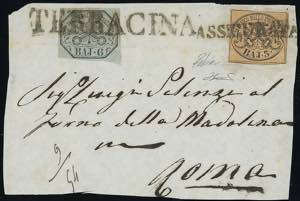 TERRACINA ASSICURATA
BAJ·6 BAJ·5
Sig Luigi al
Forno della Madalena
in
Roma
9/54